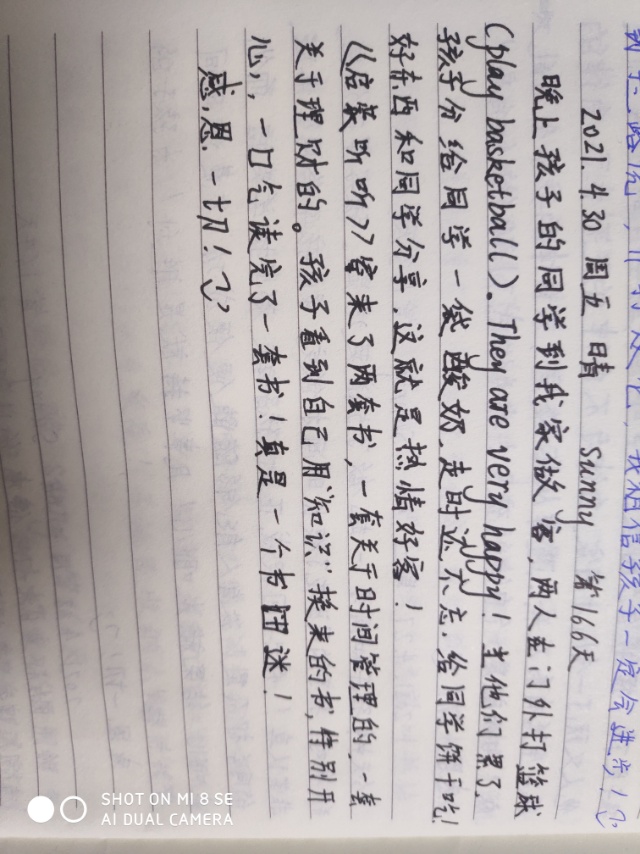 我相信孩子一定会进步!
2021.4.30 周五 晴 Sunny 第166天
晚上孩子的同学到我家做客,两人在门外打篮球
(play basketball)。They are very happy!当他们累了,
孩子份给同学一袋酸奶,走时还不忘,给同学饼干吃!
好东西和同学分享,这就是热情好客!
《后来听听》寄来了两套书,一套关于时间管理的,一套
关于理财的。孩子看到自己用"知识"换来的书,特别开
心,一口气读完了一套书!真是一个书迷!
感恩一切!
SHOT ON MI 8 SE
AI DUAL CAMERA